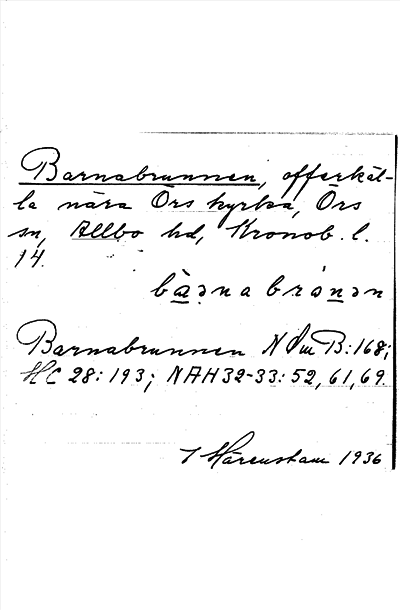 Barnabrunnen, offerkäl-
la nära Örs kyrka, Örs
sn, Allbo hd, Kronob. l.
14.
bàənabránən
Barnabrunnen N Sm B:168;
HC 28:193; NAH 32-33:52, 61, 69.
I Härenstam 1936